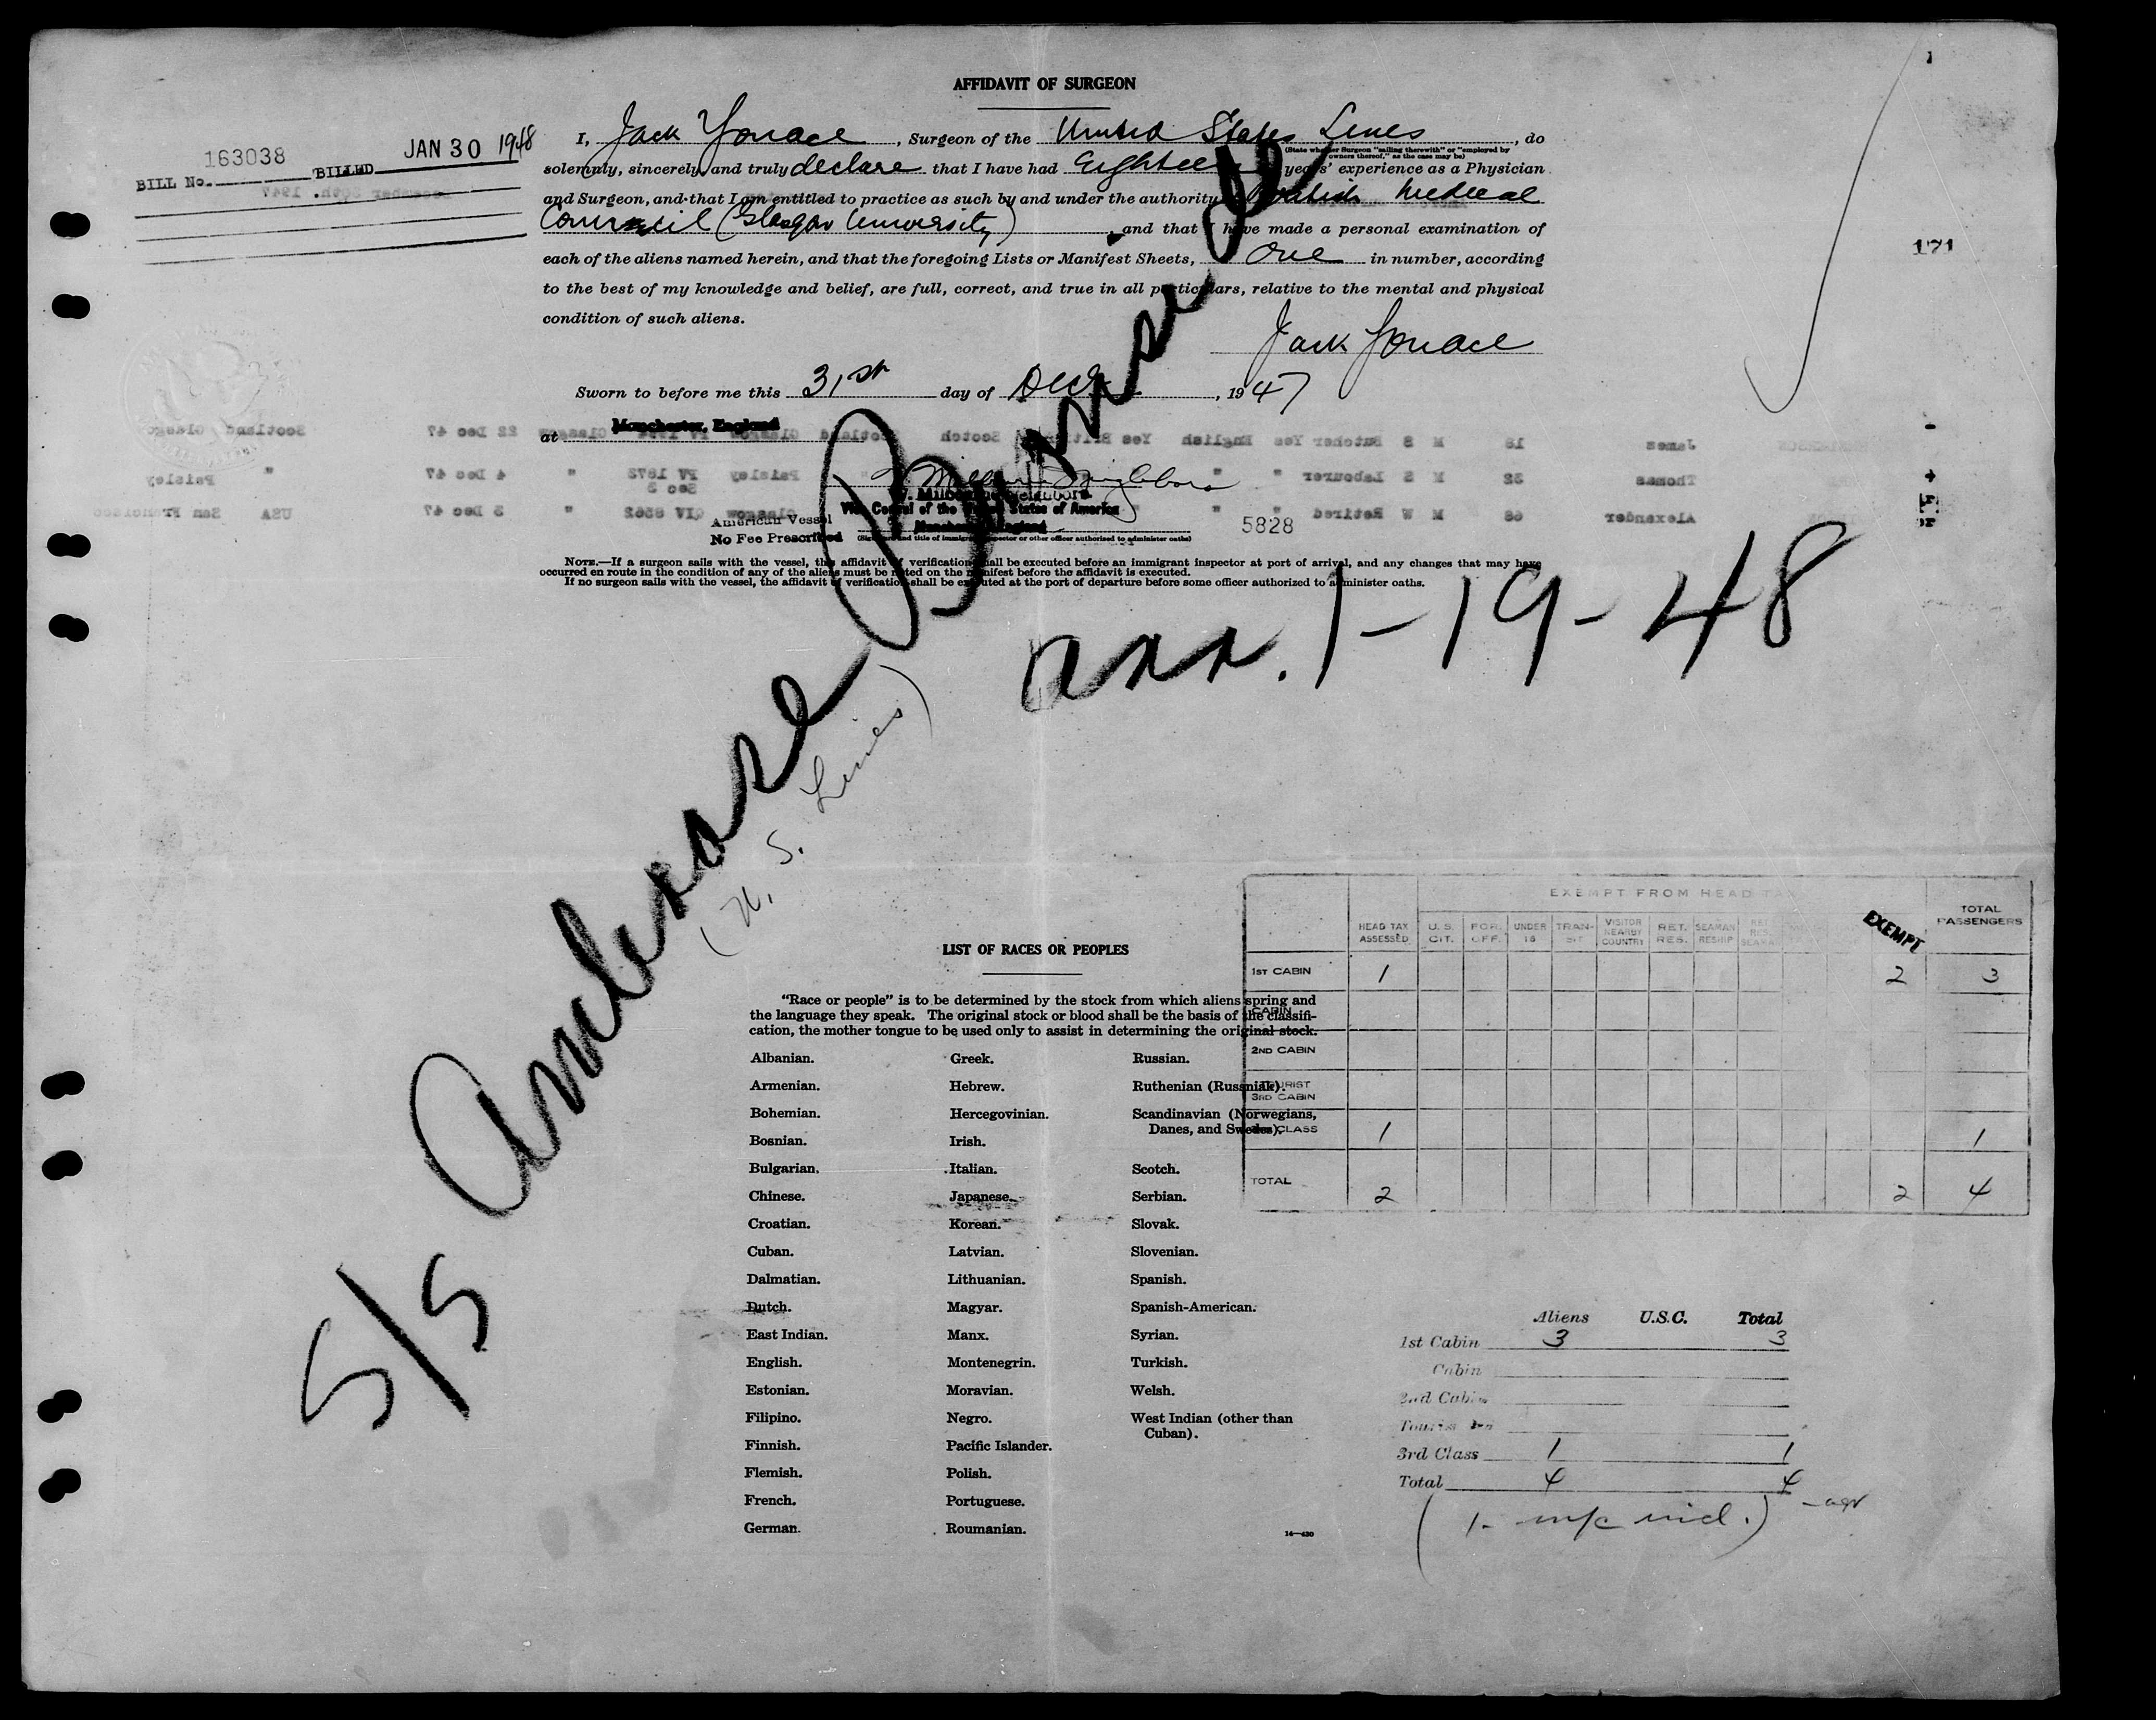 AFFIDAVIT OF SURGEON
BILL No. 163038 BILLED JAN 30 1948
I, Jack Yonace, Surgeon of the United States Lines, do
(State whether Surgeon "sailing therewith" or "employed by
owners thereof," as the case may be)
solemnly, sincerely, and truly declare that I have had Eighteen years' experience as a Physician
and Surgeon, and that I am entitled to practice as such by and under the authority British Medical
Council (Glasgow University), and that I have made a personal examination of
171
each of the aliens named herein, and that the foregoing Lists or Manifest Sheets, One in number, according
to the best of my knowledge and belief, are full, correct, and true in all particulars, relative to the mental and physical
condition of such aliens.
Jack Yonace
Sworn to before me this 31st day of Dec, 1947
at Manchester, England
Vice Consul of the United States of America
Manchester, England
American Vessel
No Fee Prescribed
5828
(Signature and title of immigrant inspector or other officer authorized to administer oaths)
NOTE.—If a surgeon sails with the vessel, this affidavit of verification shall be executed before an immigrant inspector at port of arrival, and any changes that may have
occurred en route in the condition of any of the aliens must be noted on the manifest before the affidavit is executed.
If no surgeon sails with the vessel, the affidavit of verification shall be executed at the port of departure before some officer authorized to administer oaths.
arr. 1-19-48
S/S American
(U. S. Lines)
LIST OF RACES OR PEOPLES
"Race or people" is to be determined by the stock from which aliens spring and
the language they speak. The original stock or blood shall be the basis of the classifi-
cation, the mother tongue to be used only to assist in determining the original stock.
Albanian.
Armenian.
Bohemian.
Bosnian.
Bulgarian.
Chinese.
Croatian.
Cuban.
Dalmatian.
Dutch.
East Indian.
English.
Estonian.
Filipino.
Finnish.
Flemish.
French.
German.
Greek.
Hebrew.
Hercegovinian.
Irish.
Italian.
Japanese.
Korean.
Latvian.
Lithuanian.
Magyar.
Manx.
Montenegrin.
Moravian.
Negro.
Pacific Islander.
Polish.
Portuguese.
Roumanian.
Russian.
Ruthenian (Russniak).
Scandinavian (Norwegians,
Danes, and Swedes).
Scotch.
Serbian.
Slovak.
Slovenian.
Spanish.
Spanish-American.
Syrian.
Turkish.
Welsh.
West Indian (other than
Cuban).
14—430
EXEMPT FROM HEAD TAX
HEAD TAX ASSESSED U.S. CIT. FOR. OFF. UNDER 16 TRAN-SIT VISITOR NEARBY COUNTRY RET. RES. SEAMAN RESHIP EXEMPT TOTAL PASSENGERS
1ST CABIN 1 2 3
CABIN
2ND CABIN
TOURIST
3RD CABIN
CLASS 1 1
TOTAL 2 2 4
Aliens U.S.C. Total
1st Cabin 3 3
Cabin
2nd Cabin
Tourist
3rd Class 1 1
Total 4 4